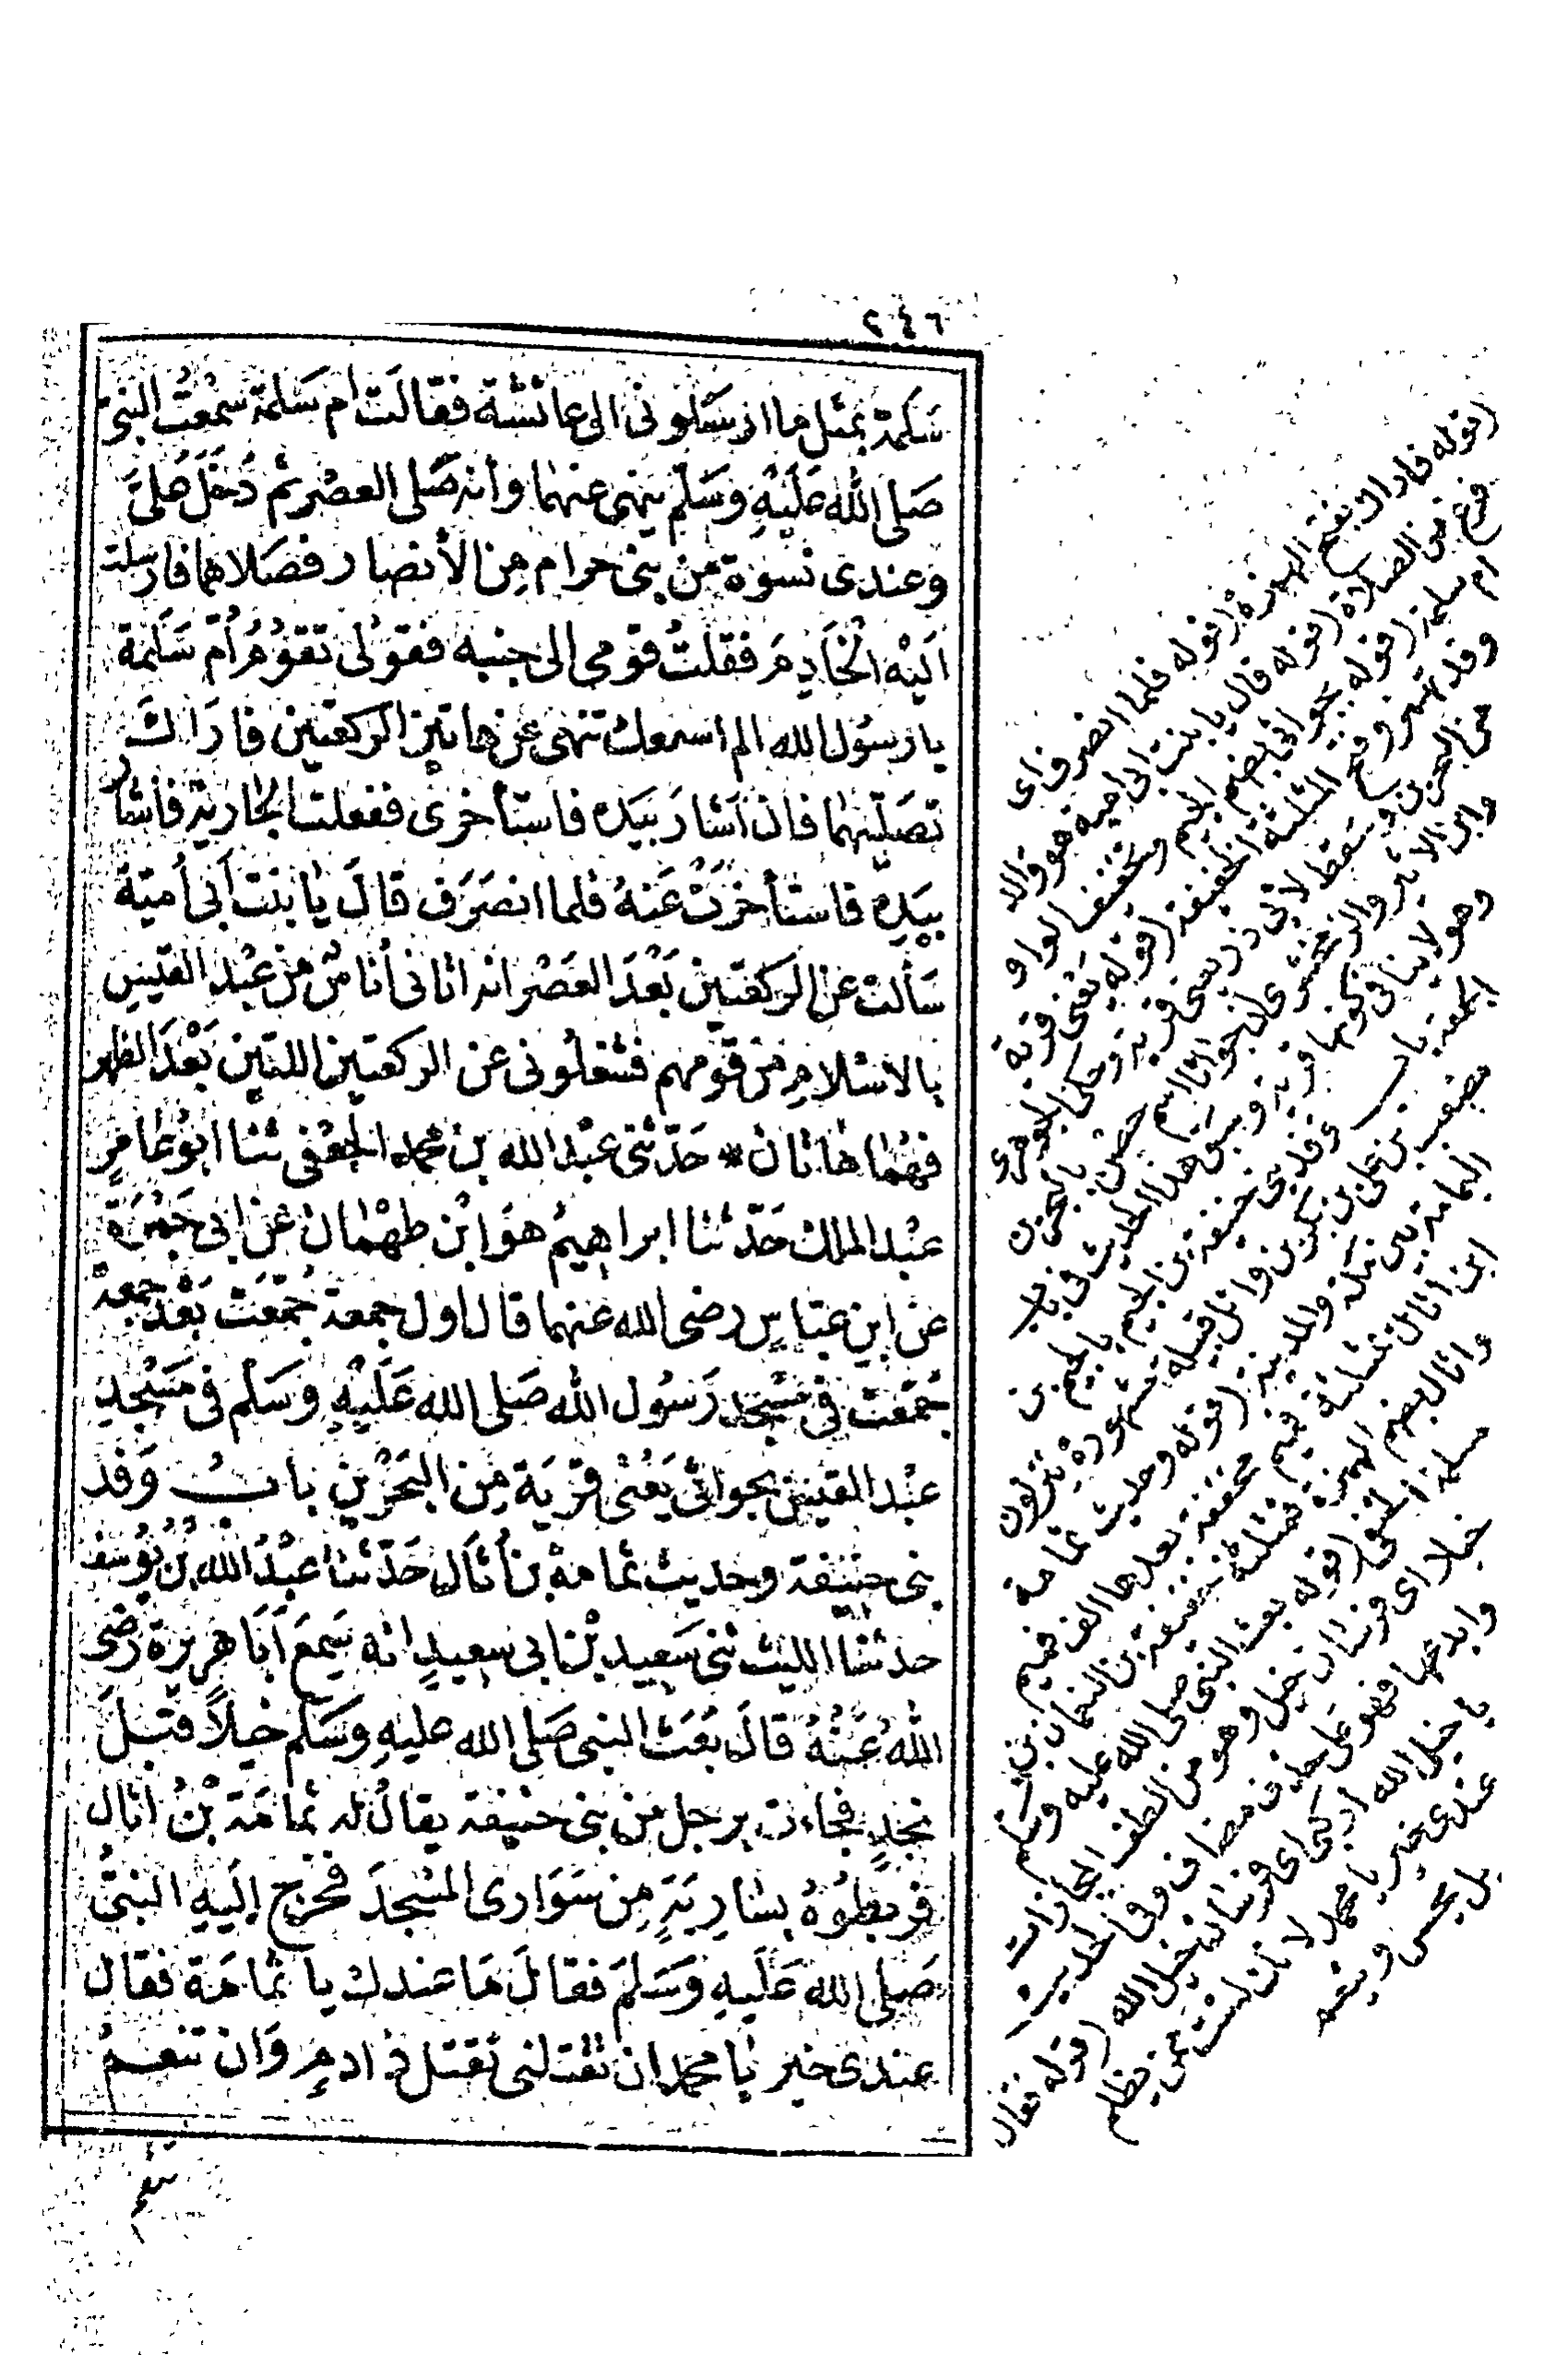 ٢٤٦
سَلَمَةَ بمثل ما ارسَلونى الى عائشة فقالَت ام سَلمة سمعتُ النبى
صَلى الله عَليْهِ وسَلم ينهى عنهما وأنه صَلى العصْر ثم دَخل عَلىَّ
وعندى نسوة من بنى حرام مِن الأنصار فصَلاهما فارسلت
اليْه الخَادِمَ فقلتُ قومى الى جنبه فقولى تقوُمُ أمّ سَلمة
يا رَسُول الله الم اسمعك تنهى عن هاتين الركعتين فاراك
تصَلّيهما فان اَشارَ بيَده فاستأخرى ففعلت الجارية فأشار
بيَدِه فاستأخرَت عَنهُ فلما انصَرَف قالَ يا بنت اَبى أمية
سَألت عن الركعَتين بَعْدَ العَصْر انه اتانى أناسٌ من عبْد القيس
بالاسْلامِ من قومهم فشغلُونى عن الركعتين اللتين بَعْدَ الظهر
فهُمَا هَاتان * حَدّثنى عبْد الله بن محمد الجعْفى ثنا ابوُ عَامرٍ
عبْد الملك حَدّثنا ابراهِيمُ هوَ ابْن طهْمان عن ابى جَمْرَة
عن ابنِ عبّاسٍ رضى الله عنهما قال اول جمعة جُمّعَت بَعْدَ جمعة
جُمعَت فى مَسْجِد رَسُول الله صَلى الله عَلَيْهِ وسَلم فى مَسْجِدِ
عبْد القيس بجواثى يَعْنى قرْيَة مِن البَحْرَين بابُ وَفد
بنى حنِيفة وحَديث ثمامة بْن أثَال حَدّثنا عبْدُ الله بْن يوُسُف
حدثنا الليث ثنى سَعِيد بْن ابى سعِيدٍ انه سَمِعَ اَبَا هرَيرَة رَضى
اللهُ عَنْهُ قالَ بَعَث النبى صَلى الله عليهِ وَسَلم خيلاً قبلَ
نجدٍ فجاءت برجل من بنى حنيفة يقالُ له ثمامَة بْنُ اثال
فربطوُهُ بسَارِيَةٍ مِن سَوَارى المسْجدَ فخرج إليهِ النبىُّ
صَلى الله عَلَيهِ وَسَلمَ فقالَ مَا عندك يا ثمامَة فقال
عندى خير يا محمد ان تقتلنى تقتل ذا دمٍ وَان تنعم
(قوله فاراك بفتح الهمزة (قوله فلما انصرف اى
فرغ من الصلاة (قوله قال يا بنت ابى امية هو والد
ام سلمة (قوله بجواثى بضم الجيم وتخفيف الواو
وقد تهمز وفتح المثلثة الخفيفة (قوله يعنى قرية
من البحرين وسقط لابى ذر يعنى قرية وحكى الجوهرى
وابن الاثير والزمخشرى ان جواثا اسم حصن بالبحرين
وهو لا ينافى كونها قرية وسبق هذا الحديث فى باب
الجمعة باب وفد بنى حنيفة بن لجيم بالجيم بن
صعب بن على بن بكر بن وائل قبيلة مشهورة ينزلون
اليمامة بين مكة والمدينة (قوله وحديث ثمامة
ابن اثال بمثلثة فميم مخففة بعدها الف فميم
واثال بضم الهمزة فمثلثة خفيفة بن النعمان بن
مسلمة الحنفى (قوله بعث النبى صلى الله عليه وسلم
خيلا اى فرسان خيل وهو من الطف المجازات
وابدعها فهو على حذف مضاف وفى الحديث
يا خيل الله اركبى اى فرسان خيل الله (قوله فقال
عندى خير يا محمد لانك لست ممن يظلم
بل يحسن وينعم
تنعم